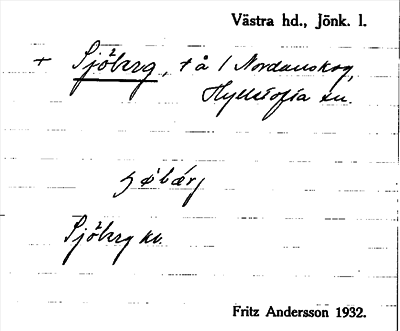 Västra hd., Jönk. l.
+ Sjöberg, + å / Nordanskog,
Hyltofta sn.
Sjöberg kv.
Fritz Andersson 1932.